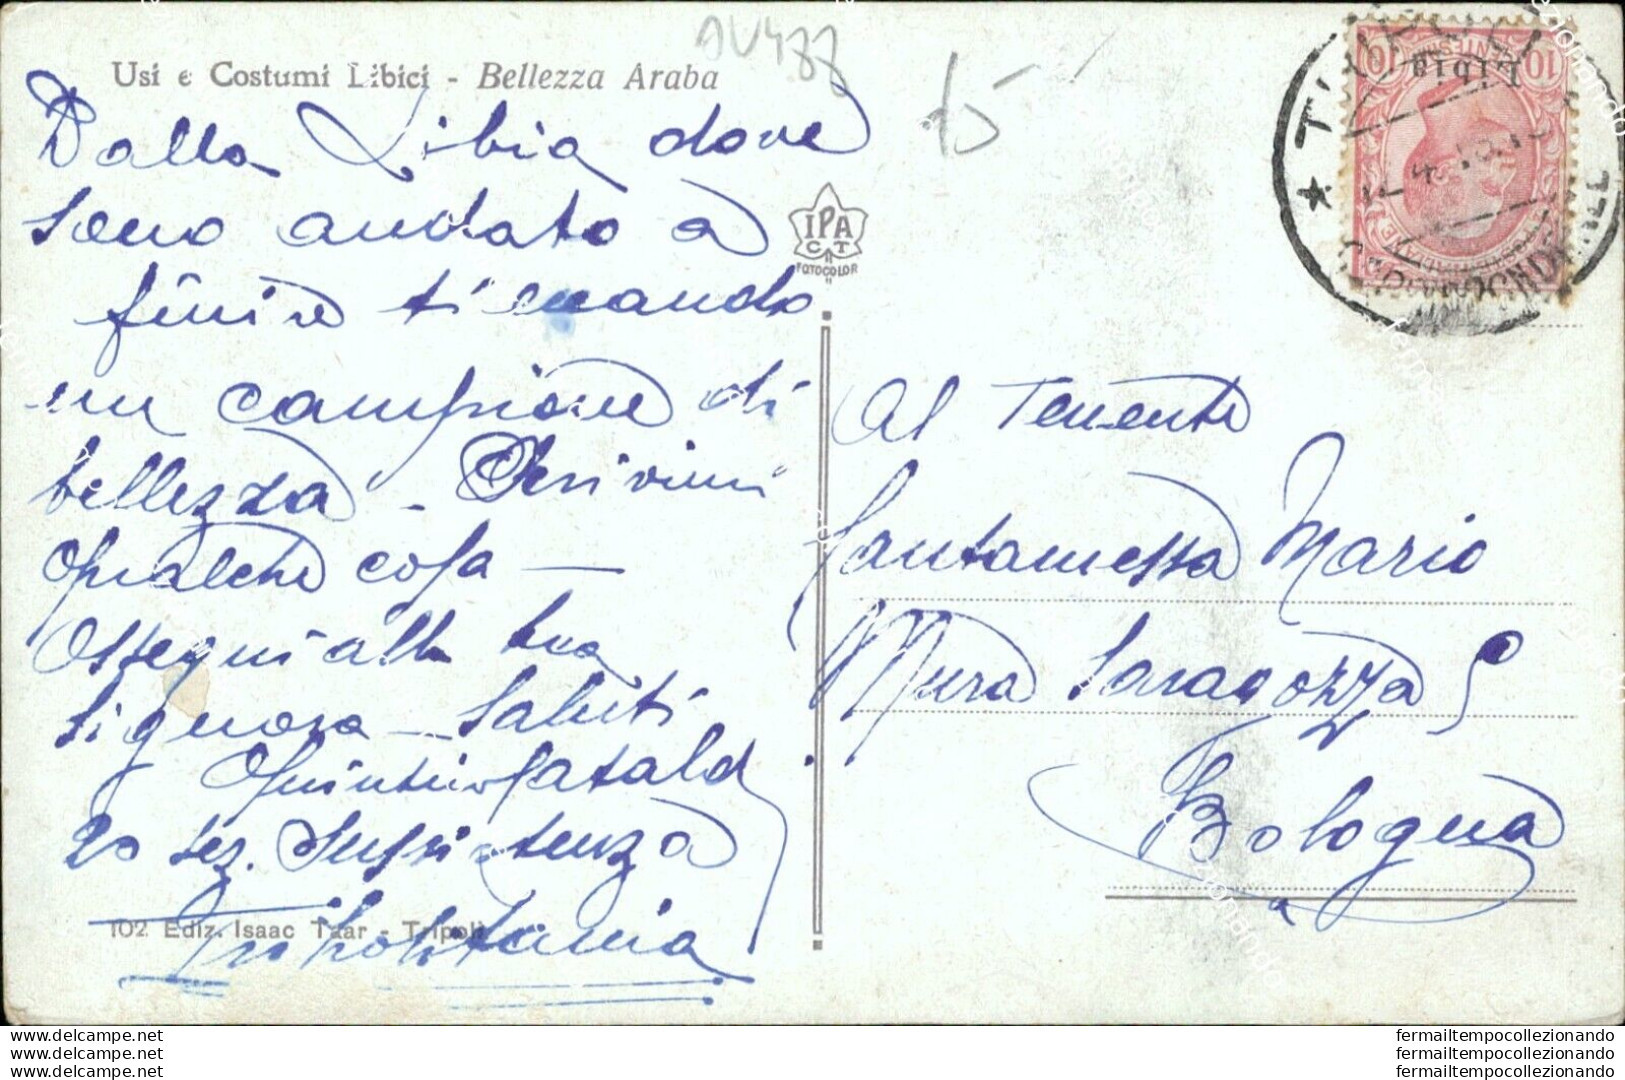 Usi e Costumi Libici - Bellezza Araba
Dalla Libia dove
sono andato a
finire ti mando
un campione di
bellezza - Scrivimi
qualche cosa —
Ossequi alla tua
Signora - Saluti
Quintino Cataldi
2a sez. Sussistenza
Tripolitania
102 Ediz. Isaac Taar - Tripoli
IPA
CT
FOTOCOLOR
Libia
10
10
Al Tenente
Santamessa Mario
Mura Saragozza 5
Bologna
delcampe.net
delcampe.net
delcampe.net
fermailtempocollezionando
fermailtempocollezionando
fermailtempocollezionando